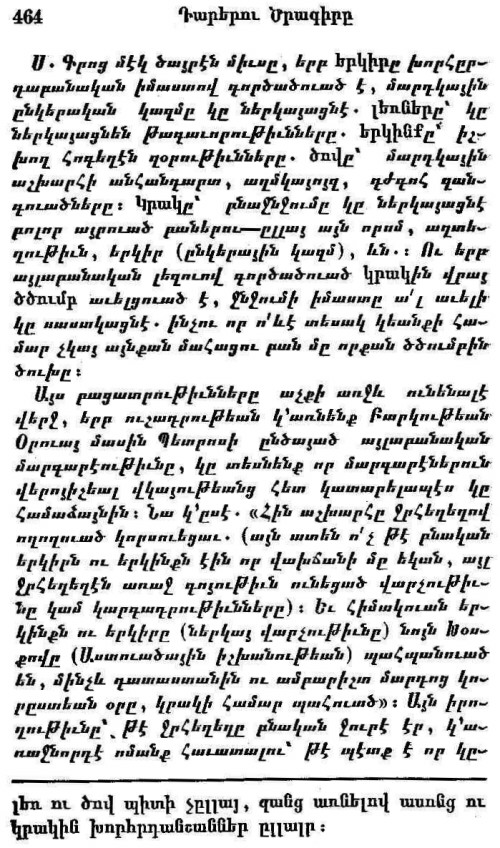 464 Դարերու Ծրագիրը
Ս. Գրոց մէկ ծայրէն միւսը, երբ երկիրը խորհըր-
դաբանական իմաստով գործածուած է, մարդկային
ընկերական կազմը կը ներկայացնէ. լեռները՝ կը
ներկայացնեն թագաւորութիւնները. երկինքը՝ իշ-
խող հոգեղէն զօրութիւնները. ծովը՝ մարդկային
աշխարհի անհանդարտ, աղմկայոյզ, դժգոհ զան-
գուածները: Կրակը՝ բնաջնջումը կը ներկայացնէ
բոլոր այրուած բաներու—ըլլայ այն որոմ, աղտե-
ղութիւն, երկիր (ընկերային կազմ), ևն.: Ու երբ
այլաբանական լեզուով գործածուած կրակին վրայ
ծծումբ աւելցուած է, ջնջումի իմաստը ա՛լ աւելի
կը սաստկացնէ. ինչու որ ո՛ևէ տեսակ կեանքի հա-
մար չկայ այնքան մահացու բան մը որքան ծծումբին
ծուխը:
Այս բացատրութիւնները աչքի առջև ունենալէ
վերջ, երբ ուշադրութեան կ՚առնենք Բարկութեան
Օրուայ մասին Պետրոսի ընծայած այլաբանական
մարգարէութիւնը, կը տեսնենք որ մարգարէներուն
վերոյիշեալ վկայութեանց հետ կատարելապէս կը
համաձայնին: Նա կ՚ըսէ. «Հին աշխարհը ջրհեղեղով
ողողուած կորսուեցաւ. (այն ատեն ո՛չ թէ բնական
երկիրն ու երկինքն էին որ վախճանի մը եկան, այլ
ջրհեղեղէն առաջ գոյութիւն ունեցած վարչութիւ-
նը կամ կարգադրութիւնները): Եւ հիմակուան եր-
կինքն ու երկիրը (ներկայ վարչութիւնը) նոյն Խօս-
քովը (Աստուածային իշխանութեան) պահպանուած
են, մինչև դատաստանին ու ամբարիշտ մարդոց կոր-
րըստեան օրը, կրակի համար պահուած»: Այն իրո-
ղութիւնը՝ թէ ջրհեղեղը բնական ջուրէ էր, կ՚ա-
ռաջնորդէ ոմանք հաւատալու՝ թէ պէտք է որ կը-
լեռ ու ծով պիտի չըլլայ, զանց առնելով ասոնց ու
կրակին խորհրդանշաններ ըլլալը: